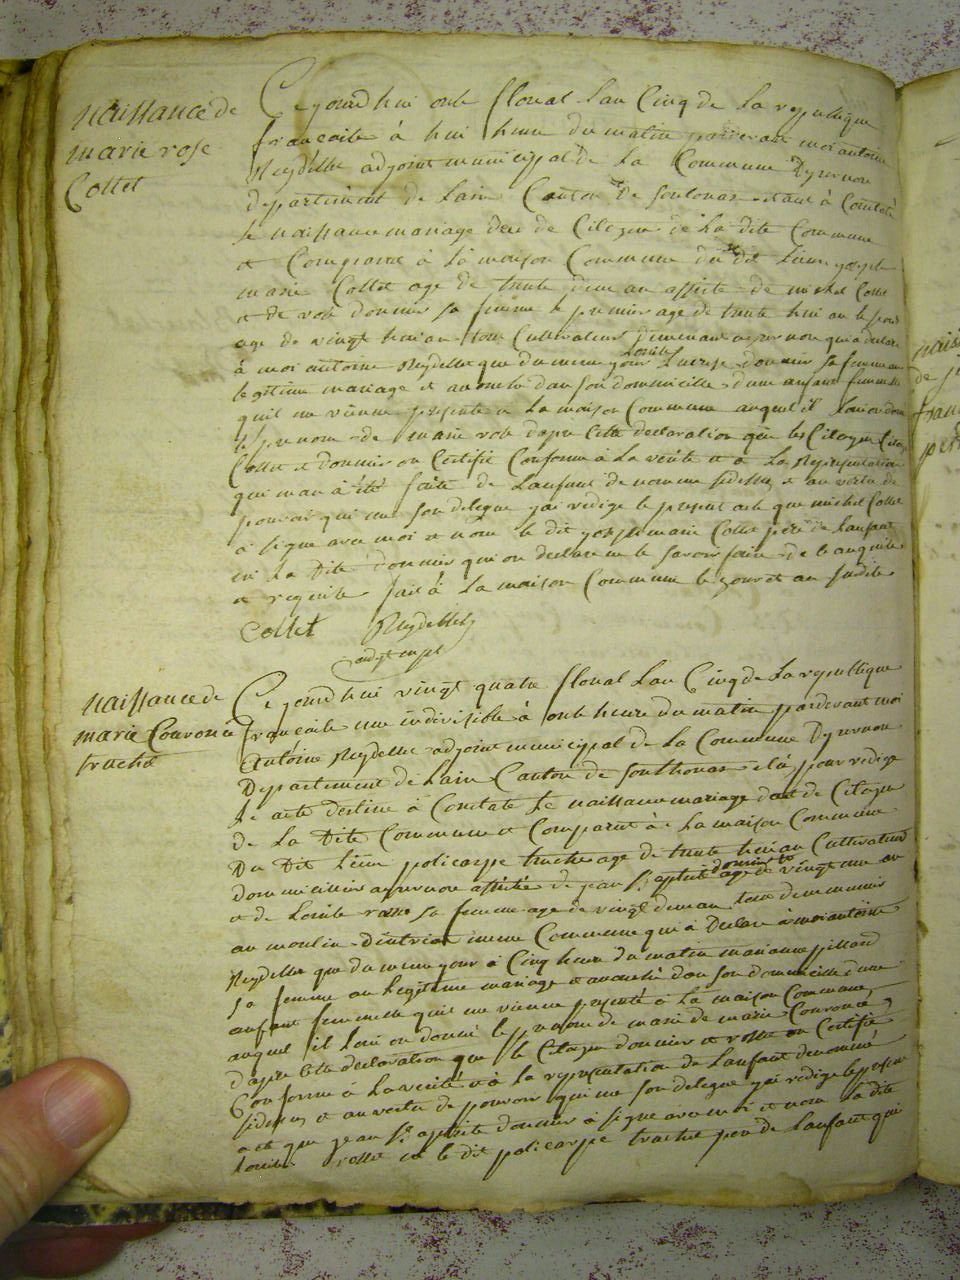 naissance de
marie rose
Collet
Ce yourdhui onse floreal Lan Cinq de La republique
francoise à hui heure du matin pardevant moi antoine
Reydellet adjoint municipal de La Commune Dyzernore
departement de Lain Canton de sontonas
le naissance mariage de Citoyen de La dite Commune
et Comparut à La maison Commune du dit Lieu yoseph
marie Collet age de trente deux an assiste de michel Collet
et de rose doumir sa femme le premier age de trente hui an le segond
age de vingt hui an tous Cultivateur demeurant a yzernore qui a declare
à moi antoine Reydellet que du meme your Louise doumir sa femme an
legitime mariage et accouche dan son dommicille dune anfant femmelle
quil me vienne presente a La maison Commune auquel il Lui on donne
le prenome de marie rose dapre Cette declaration que les Citoyen
Collet et doumir on Certifie Conforme à La verite et a La Representation
qui man à été faite de Lanfant denomme sidessu et an vertu de
pouvoir qui me son delegue yai redige le present acte que michel Collet
a signe avec moi et nom le dit yoseph marie Collet pere de Lanfant
ni La Dite doumir qui on declare ne le savoir faire de ce anquerite
et requite fait à La maison Commune le your et an sudite
Collet Reydellet
adjt mpl
naissance de
marie Couronce
truche
Ce yourdhui vingt quatre floreal Lan Cinq de La republique
francoise une indivisible à onse heure du matin pardevant moi
Antoine Reydellet adjoint municipal de La Commune Dyzernore
Departement de Lain Canton de sonthonas elu pour redige
le acte destine à Constate Le naissance mariage de Citoyen
de La Dite Commune et Comparut à La maison Commune
Du Dit Lieu policarpe truche age de trente hui an Cultivateur
dommicillier a yzernore assistée de jean Bs aptiste doumir age de vingt une an
et de Louise rosse sa femme age de vingt deux an tous demmeurir
au moulin Dintriat meme Commune qui à Declare à moi antoine
Reydellet que du meme your à Cinq heure du matin marianne pilland
sa femme an legitime mariage et accouché dan son dommicille dune
anfant femmelle quil me vienne presenté à La maison Commune
auquel il Lui on donné le prenome de marie Couronce
dapre Cette declaration que le Citoyen doumir et rosse on Certifie
Conforme à La verité et à la representation de Lanfant denommé
sidessu et an vertu de pouvoir qui me son delegue yai redige le present
acte que jean Bs aptiste doumir à signe avec moi et nom La dite
Louise rosse ni le dit policarpe truchet pere de Lanfant qui